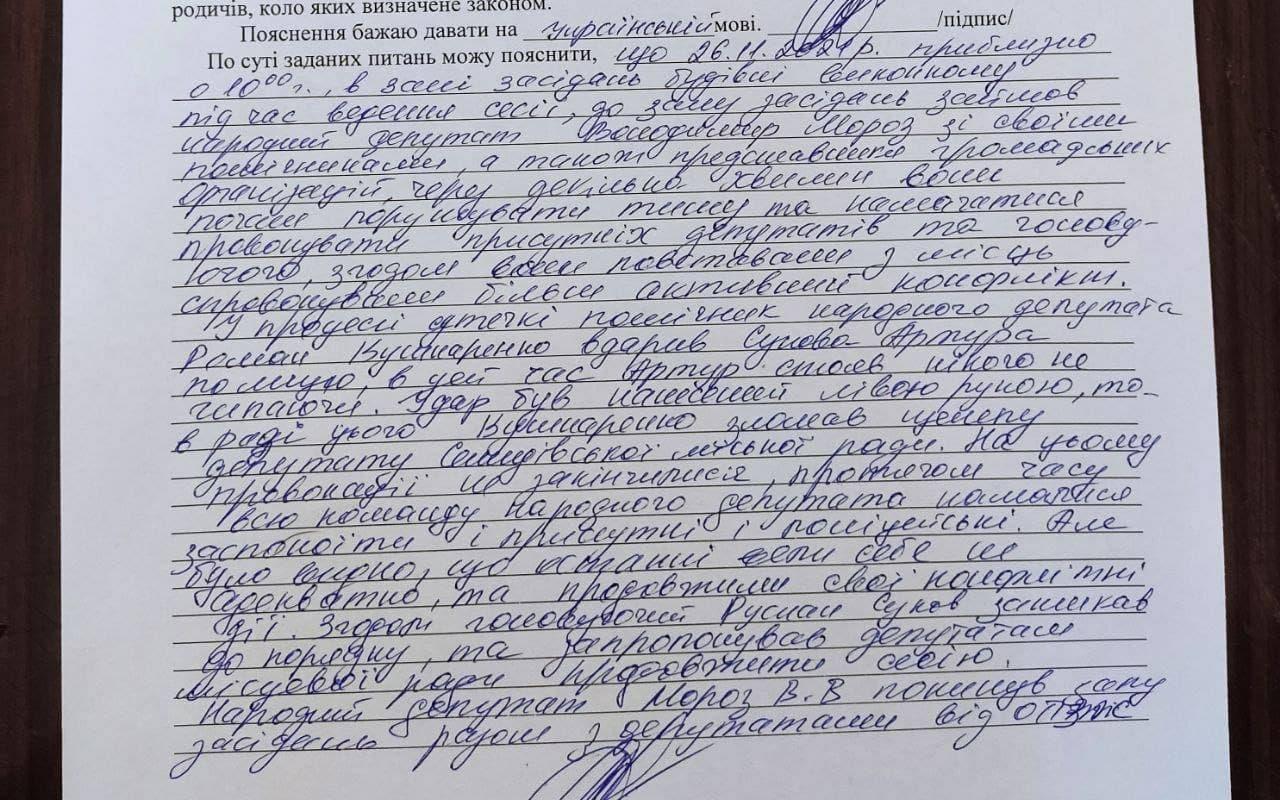 родичів, коло яких визначене законом.
Пояснення бажаю давати на українській мові. /підпис/
По суті заданих питань можу пояснити, що 26.11.2021р. приблизно
о 10⁰⁰ г., в залі засідань будівлі виконкому
під час ведення сесії, до залу засідань зайшов
народний депутат Володимир Мороз зі своїми
помічниками, а також представники громадських
організацій, через декілька хвилин вони
почали порушувати тишу та намагатися
провокувати присутніх депутатів та голову-
ючого, згодом вони повставали з місць
спровокували більш активний конфлікт.
У процесі помічник народного депутата
Роман Кушнаренко вдарив Сукова Артура
по лицю, в цей час Артур стояв нікого не
чипаючи. Удар був нанесений лівою рукою, то-
в раді цього Кушнаренко зломав щелепу
депутату Синельської міської ради. На цьому
провокації не закінчилися, протягом часу
всю команду Народного депутата намагалися
заспокоїти і присутні і поліцейські. Але
було видно, що останні вели себе не
адекватно, та продовжили свої конфліктні
дії. Згодом головуючий Руслан Суков закликав
до порядку, та запропонував депутатам
місцевої ради продовжити сесію.
Народний депутат Мороз В.В покинув залу
засідань разом з депутатами від ОПЗЖ